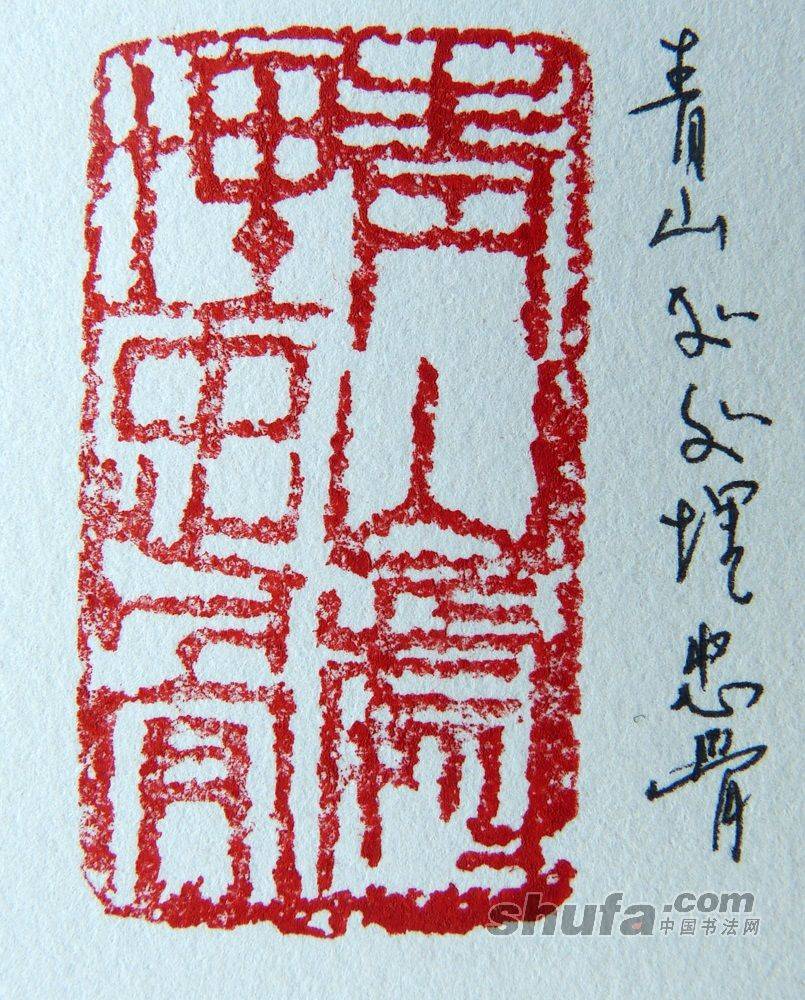 青山处处埋忠骨
青山處〻
埋忠骨
shufa.com
中国书法网